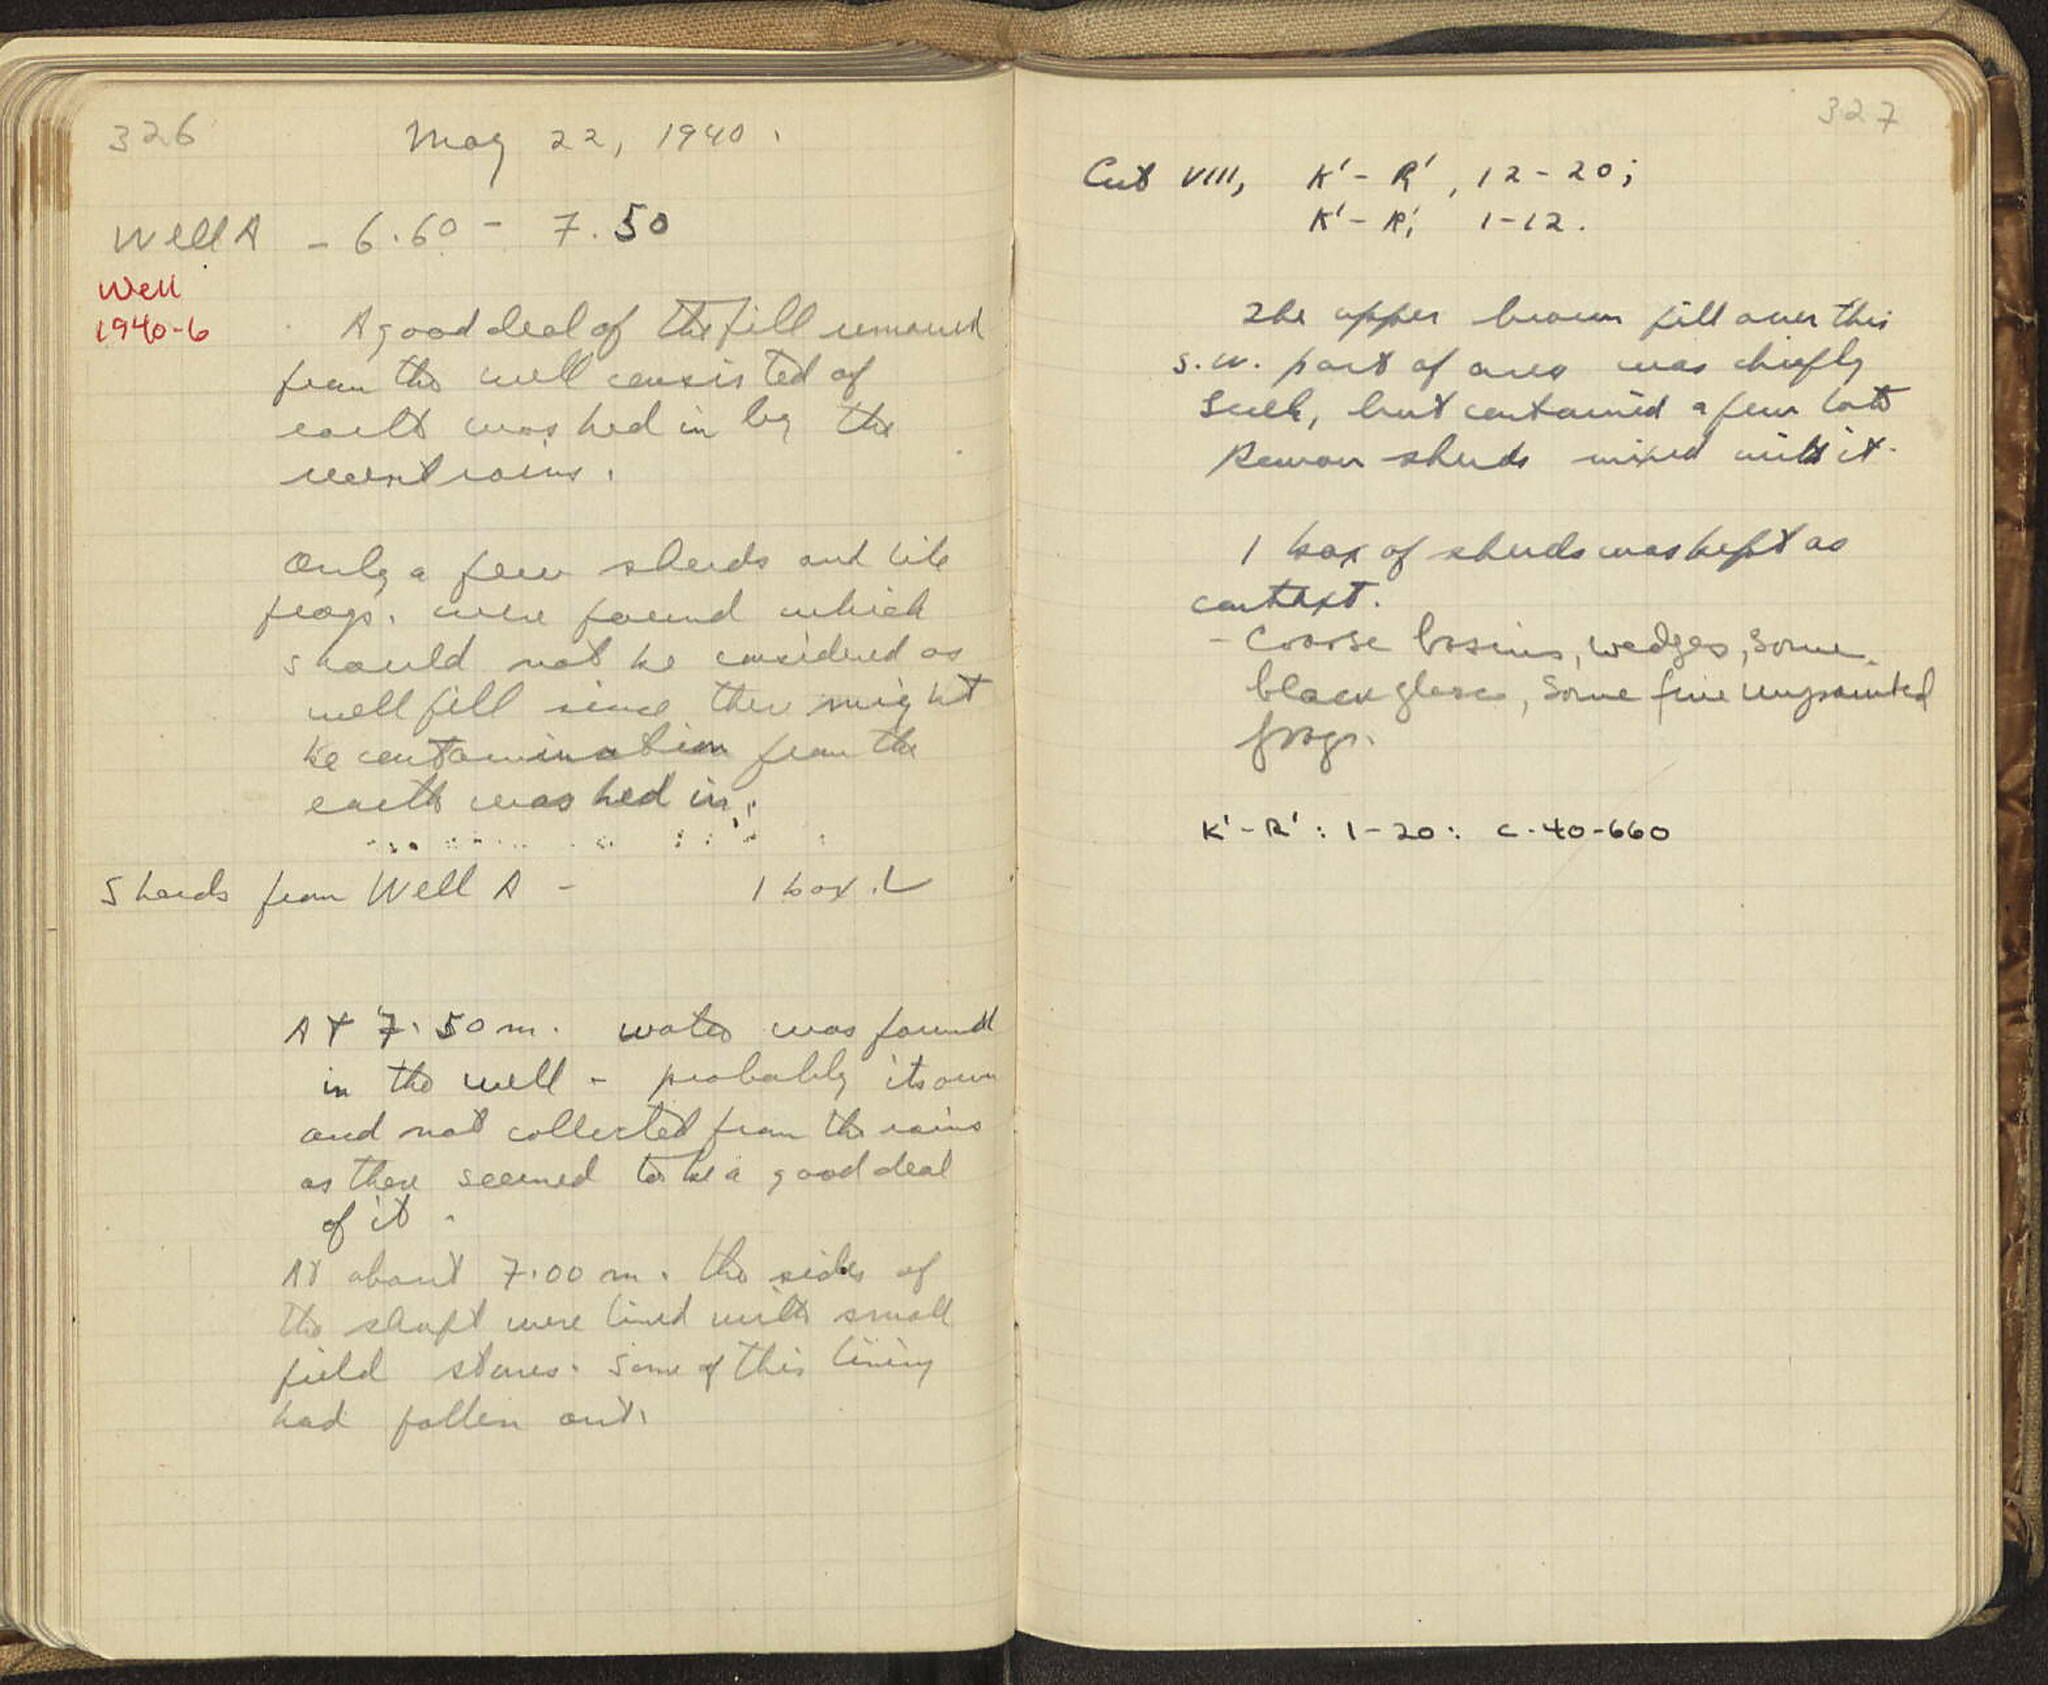 326
May 22, 1940.
Well A - 6.60 - 7.50
Well
1940-6
A good deal of the fill removed
from the well consisted of
earth washed in by the
recent rains.
Only a few sherds and tile
frags. were found which
should not be considered as
well fill since ther might
be contamination from the
earth washed in.
Sherds from Well A - 1 box.
At 7.50 m. water was found
in the well - probably its own
and not collected from the rains
as there seemed to be a good deal
of it.
At about 7.00 m. the sides of
the shaft were lined with small
field stones. Some of this lining
had fallen out.
327
Cut VIII, K' - R', 12-20;
K' - R', 1-12.
The upper brown fill over this
S.W. part of area was chiefly
but contained a few late
Roman sherds mixed with it.
1 box of sherds was kept as
context.
- Coarse basins, wedges, some
black glaze, some fine unpainted
frags.
K' - R' : 1-20 : C-40-660